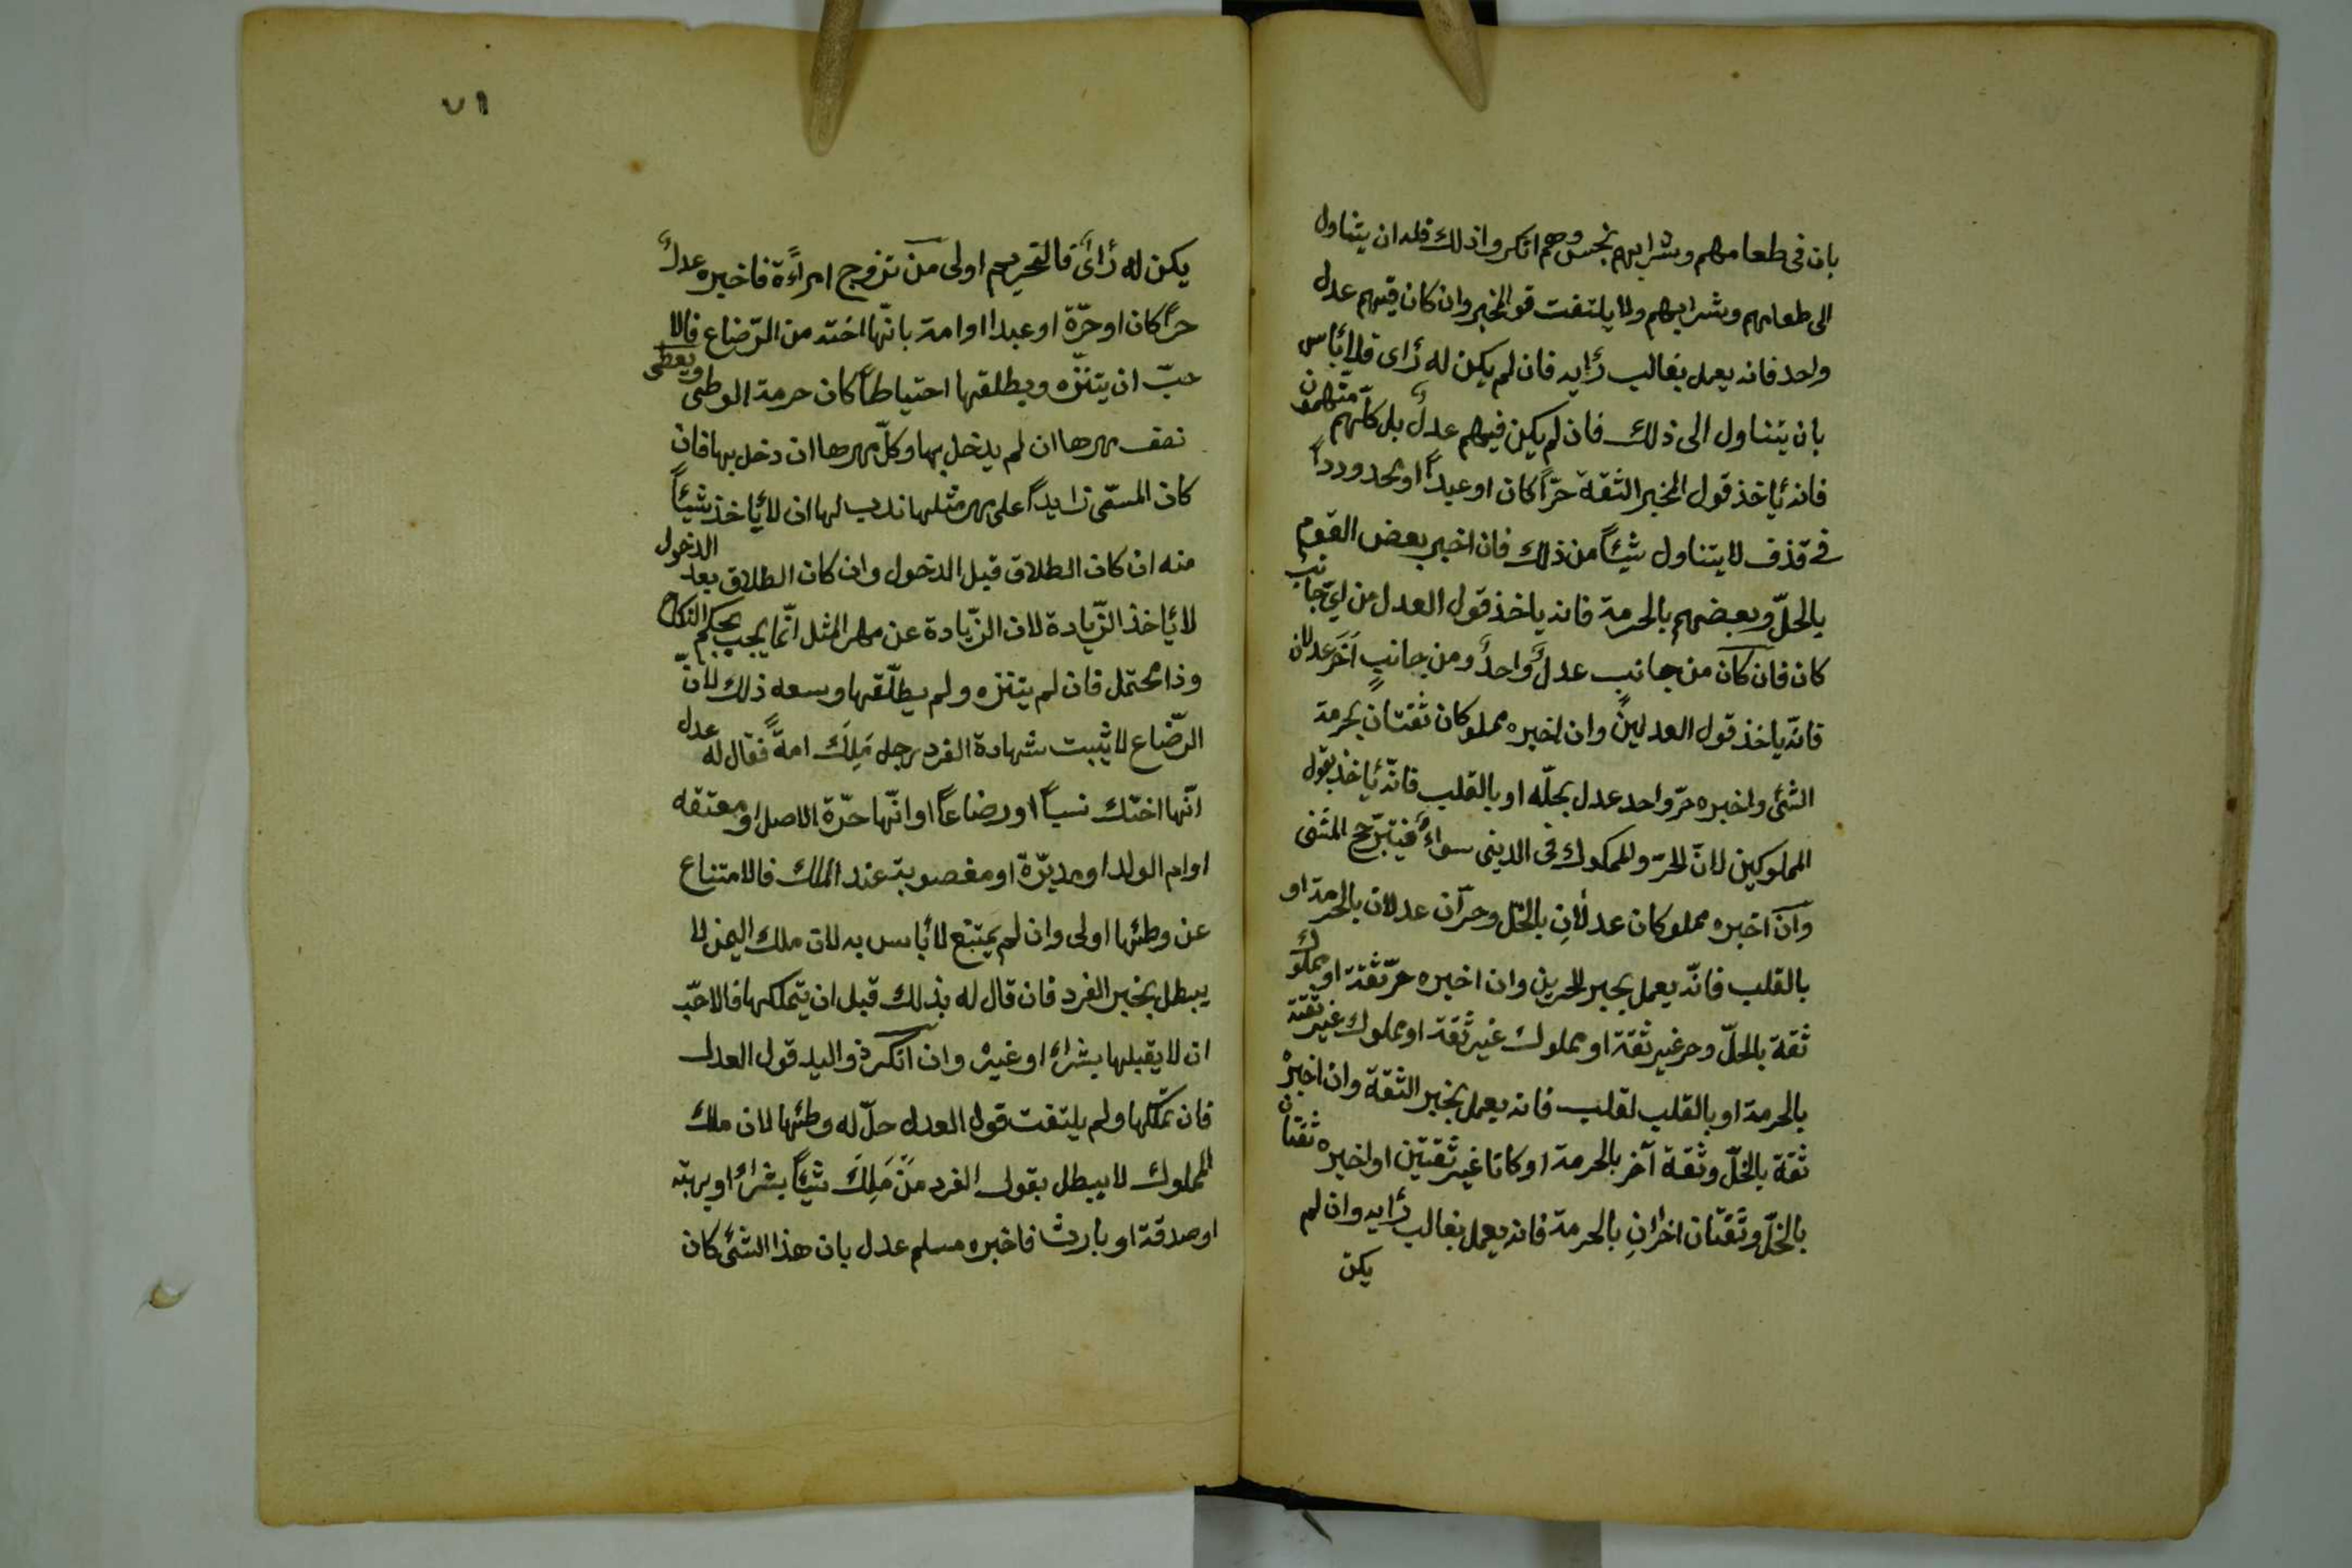 بان فى طعامهم وشرابهم نجس وهم انكروا ذلك فله ان يتناول
الى طعامهم وشرابهم ولا يلتفت قول المخبر وان كان فيهم عدل
واحد فانه يعمل بغالب رأيه فان لم يكن له رأى فلا بأس
بان يتناول الى ذلك فان لم يكن فيهم عدلٌ بل كلّهم متّهمون
فانه يأخذ قول المخبر الثقة حرّاً كان او عبداً او محدوداً
فى قذف لا يتناول شيئاً من ذلك فان اخبر بعض القوم
بالحلّ وبعضهم بالحرمة فانه ياخذ قول العدل من اىّ جانب
كان فان كان من جانب عدلٌ واحدٌ ومن جانبٍ آخَر عدلان
فانّه ياخذ قول العدلين وان اخبره مملوكان ثقتان بحرمة
الشئ واخبره حرّ واحد عدل بحلّه او بالقلب فانّه يأخذ بقول
المملوكين لانّ الحرّ والمملوك فى الدينى سواءٌ فيترجّح المثنى
وان اخبره مملوكان عدلانِ بالحلّ وحرّان عدلان بالحرمة او
بالقلب فانّه يعمل بخبر الحرين وان اخبره حرّ ثقة او مملوك
ثقة بالحلّ وحر غير ثقة او مملوك غير ثقة او مملوك غير ثقة
بالحرمة او بالقلب لقلب فانه يعمل بخبر الثقة وان اخبره
ثقة بالحلّ وثقة آخر بالحرمة او كانا غير ثقتين او اخبره ثقتان
بالحلّ وثقتان اخرانِ بالحرمة فانه يعمل بغالب رأيه وان لم
يكن
٧١
يكن له رأىٌ فالتحريم اولى من تزوج امرأة فاخبره عدلٌ
حرّاً كان او حرّة او عبدا او امة بانّها اخته من الرّضاع فالا
حبّ ان يتنزّه ويطلقها احتياطاً كان حرمة الوطى ويعطى
نصف مهرها ان لم يدخل بها وكلّ مهرها ان دخل بها فان
كان المسمّى زايداً على مهر مثلها ندب لها ان لا يأخذ شيئاً
منه ان كان الطلاق قبل الدخول وان كان الطلاق بعد الدخول
لا يأخذ الزّيادة لان الزّيادة عن مهر المثل انّما يجب بحكم النكاح
وذا محتمل فان لم يتنزه ولم يطلّقها وسعه ذلك لانّ
الرّضاع لا يثبت شهادة الفرد رجل مَلِكَ امةً فقال له عدل
انّها اختك نسباً او رضاعاً او انّها حرّة الاصل او معتقه
او ام الولد او مدبّرة او مغصوبة عند المالك فالامتناع
عن وطئها اولى وان لم يمتنع لا بأس به لان ملك اليمن لا
يبطل بخبر الفرد فان قال له بذلك قبل ان يتملكها فالاحبّ
ان لا يقبلها بشراءٍ او غيره وان انكر ذو اليد قول العدل
فان تملّكها ولم يلتفت قول العدل حلّ له وطئها لان ملك
المملوك لا يبطل بقول الفرد مَنْ مَلِكَ شيئاً بشراءٍ او بهبة
او صدقة او بارث فاخبره مسلم عدل بان هذا الشئ كان